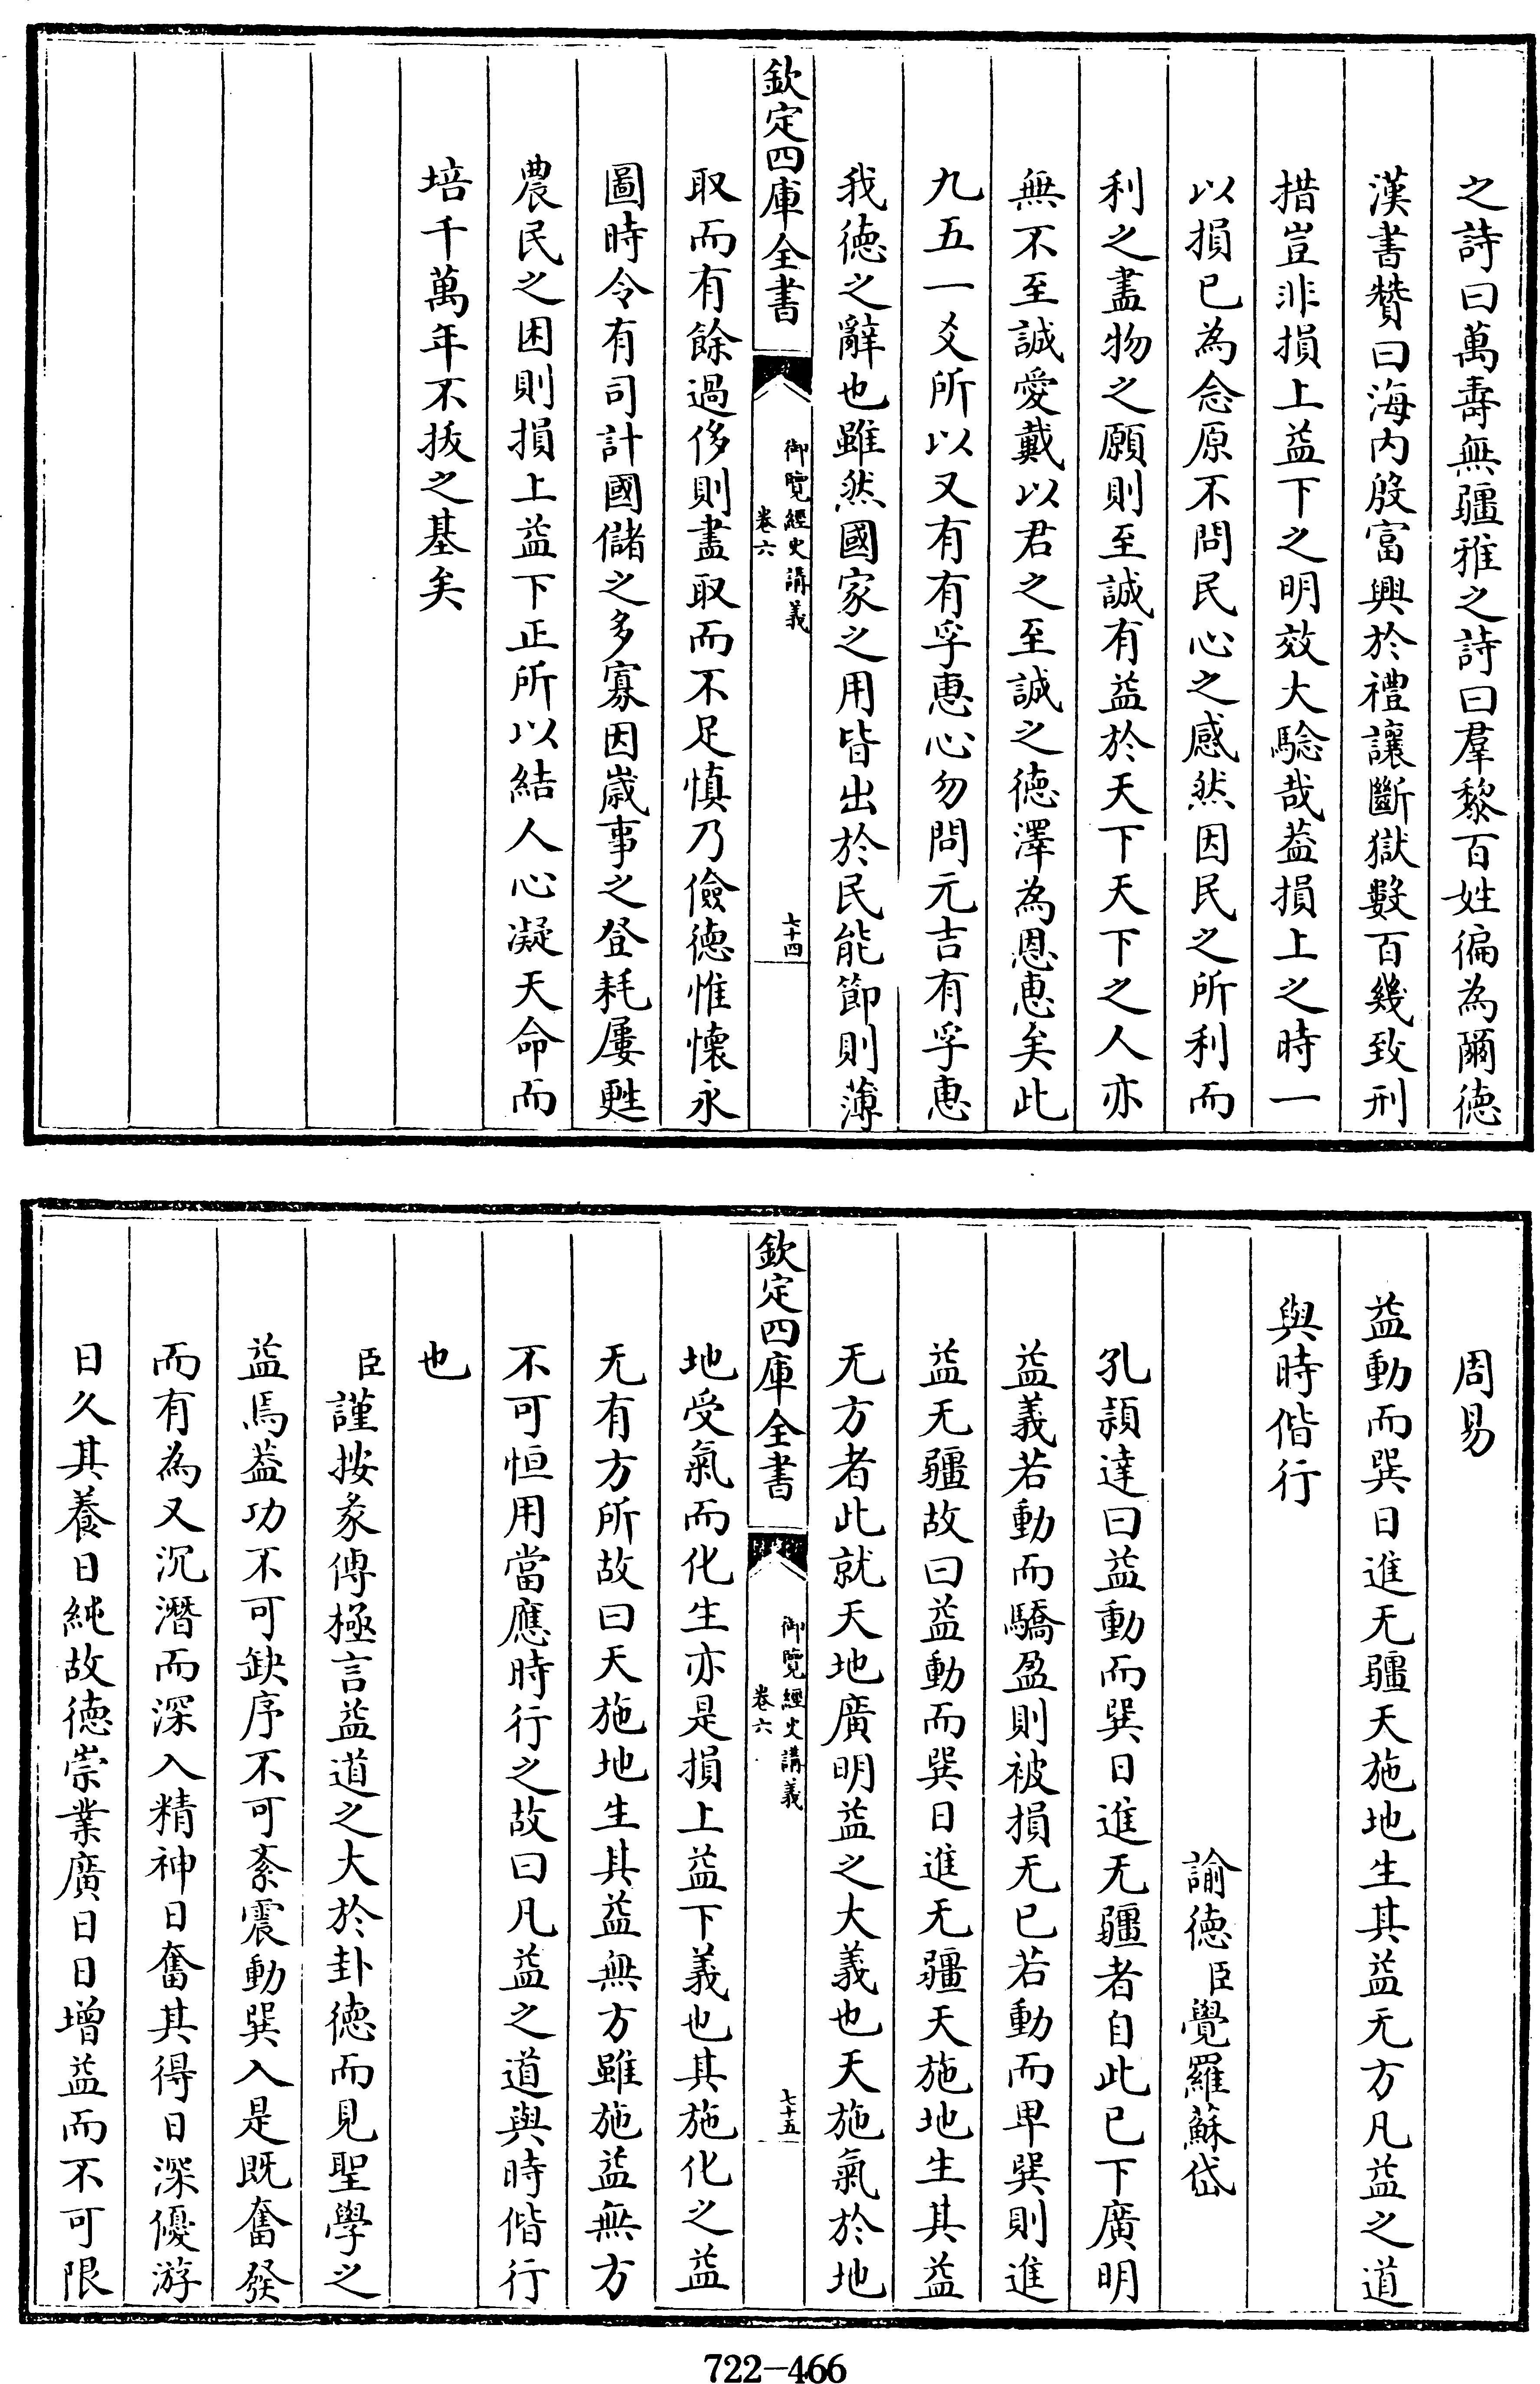 之詩曰萬壽無疆雅之詩曰羣黎百姓徧為爾徳
漢書贊曰海内殷富興於禮讓斷獄數百幾致刑
措豈非損上益下之明效大驗哉葢損上之時一
以損已為念原不問民心之感然因民之所利而
利之盡物之願則至誠有益於天下天下之人亦
無不至誠愛戴以君之至誠之徳澤為恩惠矣此
九五一爻所以又有有孚惠心勿問元吉有孚惠
我徳之辭也雖然國家之用皆出於民能節則薄
欽定四庫全書
御覽經史講義
卷六
七十四
取而有餘過侈則盡取而不足慎乃儉徳惟懐永
圖時令有司計國儲之多寡因歲事之登耗屢甦
農民之困則損上益下正所以結人心凝天命而
培千萬年不拔之基矣
周易
益動而巽日進无疆天施地生其益无方凡益之道
與時偕行
諭徳臣覺羅蘇岱
孔頴達曰益動而巽日進无疆者自此已下廣明
益義若動而驕盈則被損无已若動而卑巽則進
益无疆故曰益動而巽日進无疆天施地生其益
无方者此就天地廣明益之大義也天施氣於地
欽定四庫全書
御覽經史講義
卷六
七十五
地受氣而化生亦是損上益下義也其施化之益
无有方所故曰天施地生其益無方雖施益無方
不可恒用當應時行之故曰凡益之道與時偕行
也
臣謹按彖傳極言益道之大於卦徳而見聖學之
益焉葢功不可缺序不可紊震動巽入是既奮發
而有為又沉潛而深入精神日奮其得日深優游
日久其養日純故徳崇業廣日日增益而不可限
722-466